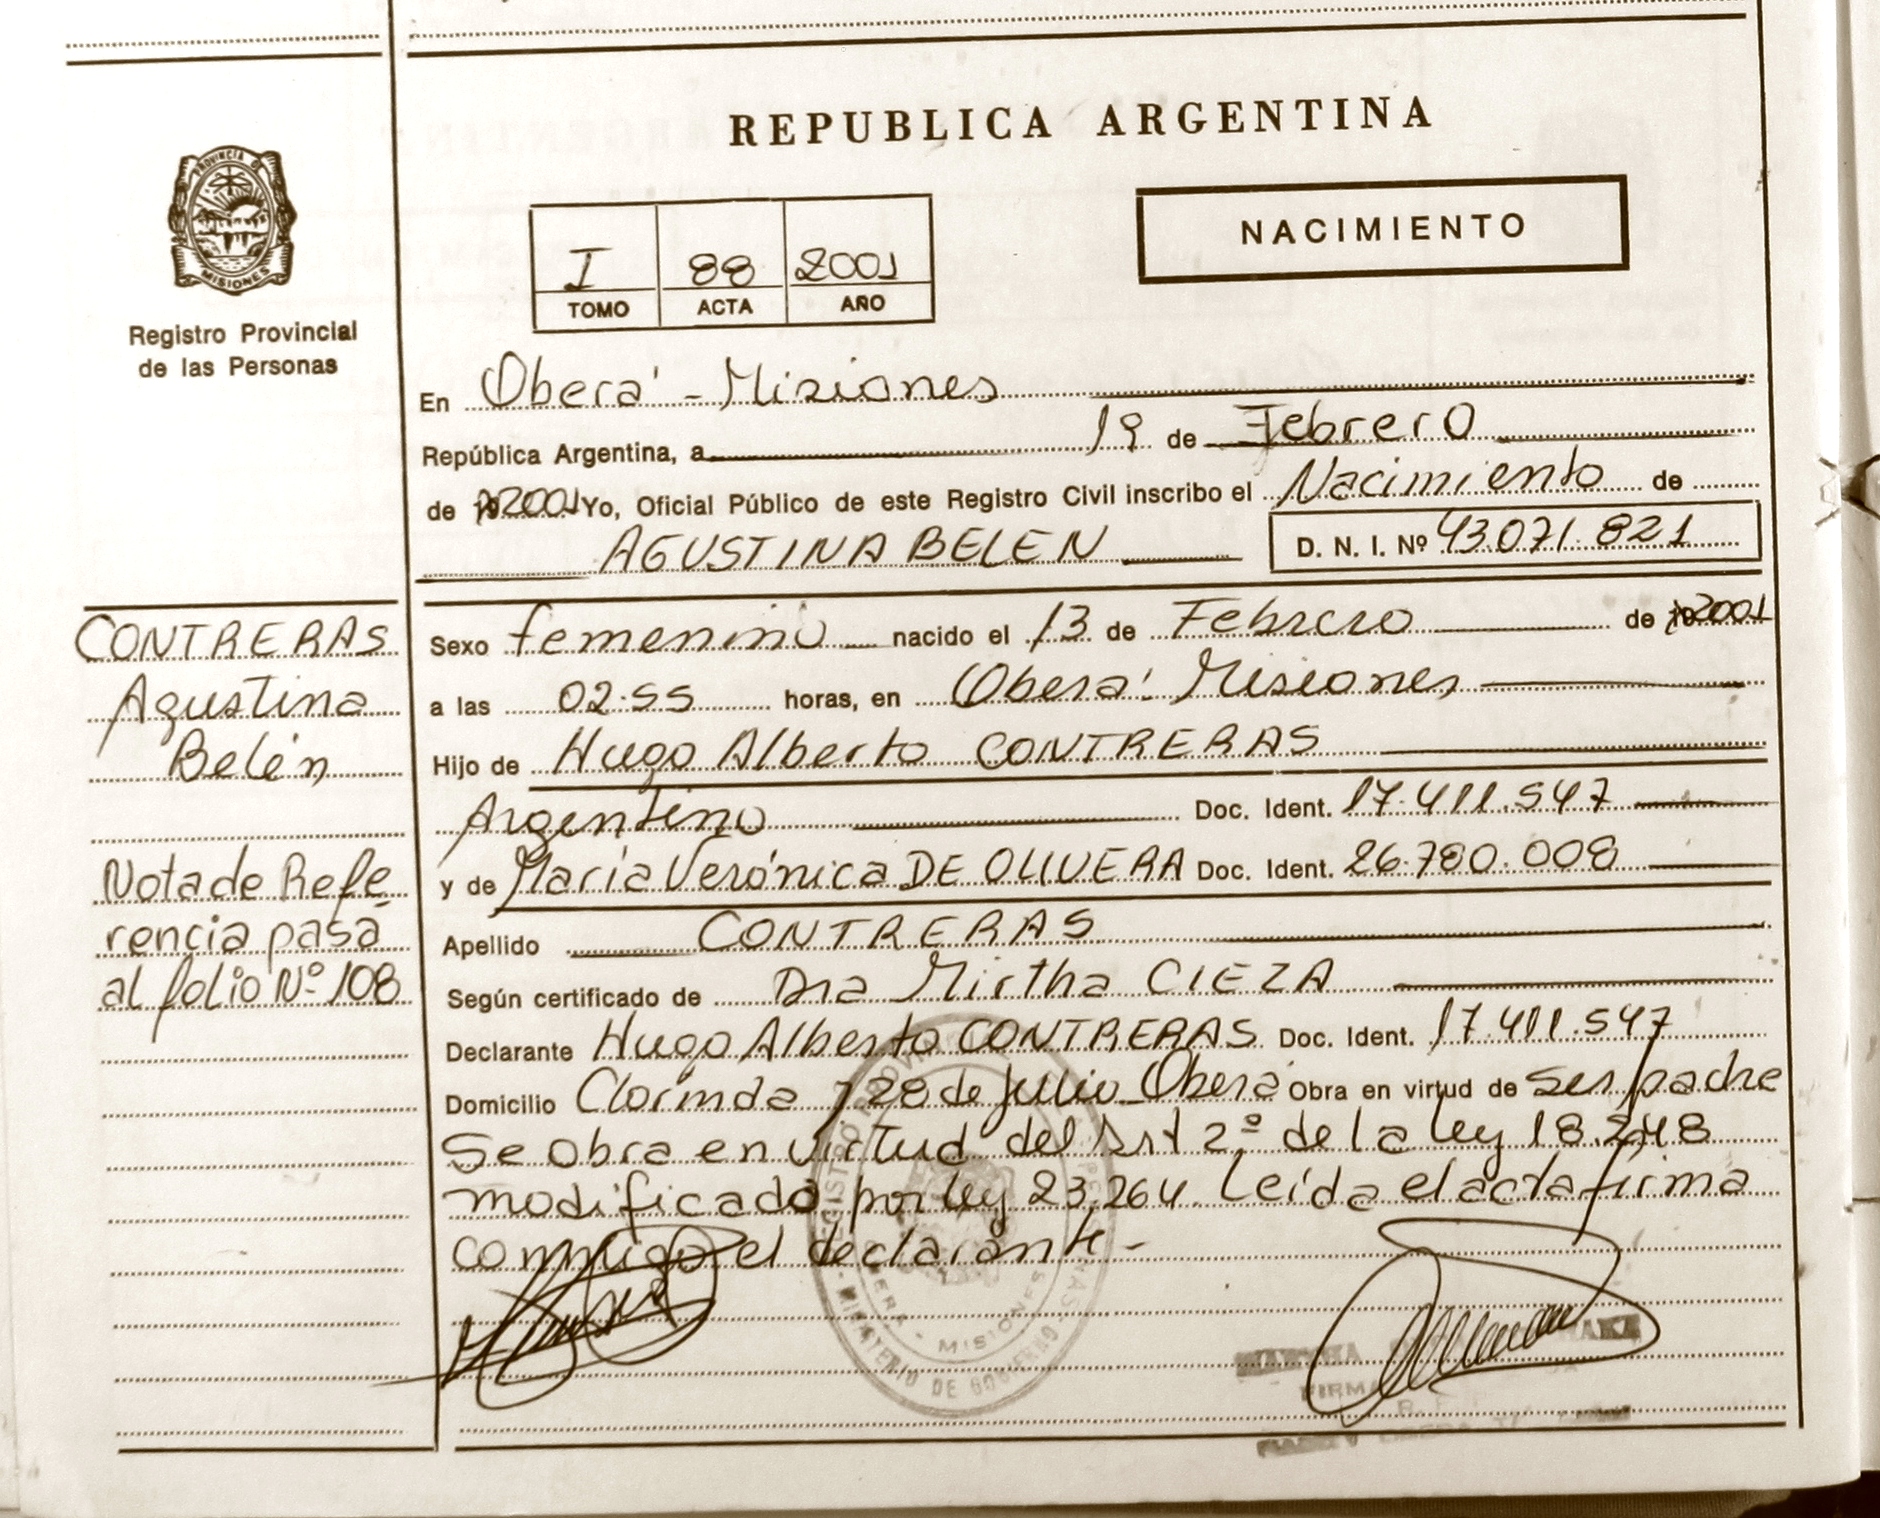 REPUBLICA ARGENTINA
NACIMIENTO
I 88 2001
TOMO ACTA AÑO
PROVINCIA DE
MISIONES
Registro Provincial
de las Personas
En Oberá - Misiones
República Argentina, a 19 de Febrero
de 2001 Yo, Oficial Público de este Registro Civil inscribo el Nacimiento de
AGUSTINA BELEN D. N. I. Nº 43.071.821
CONTRERAS
Agustina
Belén
Nota de Refe
rencia pasa
al folio Nº 108
Sexo femenino nacido el 13 de Febrero de 2001
a las 02.55 horas, en Oberá. Misiones
Hijo de Hugo Alberto CONTRERAS
Argentino Doc. Ident. 17.411.547
y de María Verónica DE OLIVERA Doc. Ident. 26.780.008
Apellido CONTRERAS
Según certificado de Dra Mirtha CIEZA
Declarante Hugo Alberto CONTRERAS Doc. Ident. 17.411.547
Domicilio Clorinda y 28 de Julio Oberá Obra en virtud de ser padre
Se obra en virtud del Art 2º de la ley 18.248
modificado por ley 23.264 Leída el acta firma
conmigo el declarante-
MISIONES
MINISTERIO DE GOBIERNO